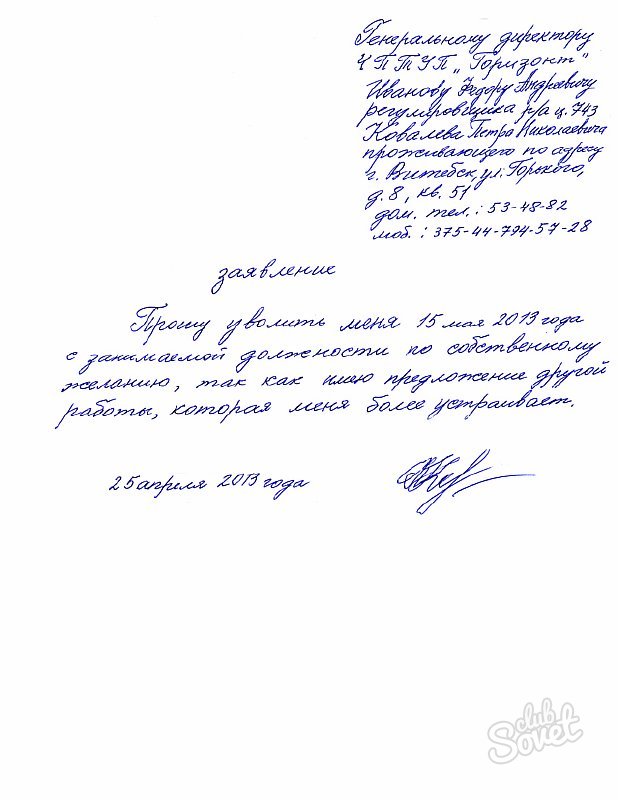 Генеральному директору
ЧПТУП „Горизонт"
Иванову Федору Андреевичу
регулировщика р/а ц. 743
Ковалева Петра Николаевича
проживающего по адресу
г. Витебск, ул. Горького,
д. 8, кв. 51
дом. тел.: 53-48-82
моб.: 375-44-794-57-28
заявление
Прошу уволить меня 15 мая 2013 года
с занимаемой должности по собственному
желанию, так как имею предложение другой
работы, которая меня более устраивает.
25 апреля 2013 года
club
Sovet